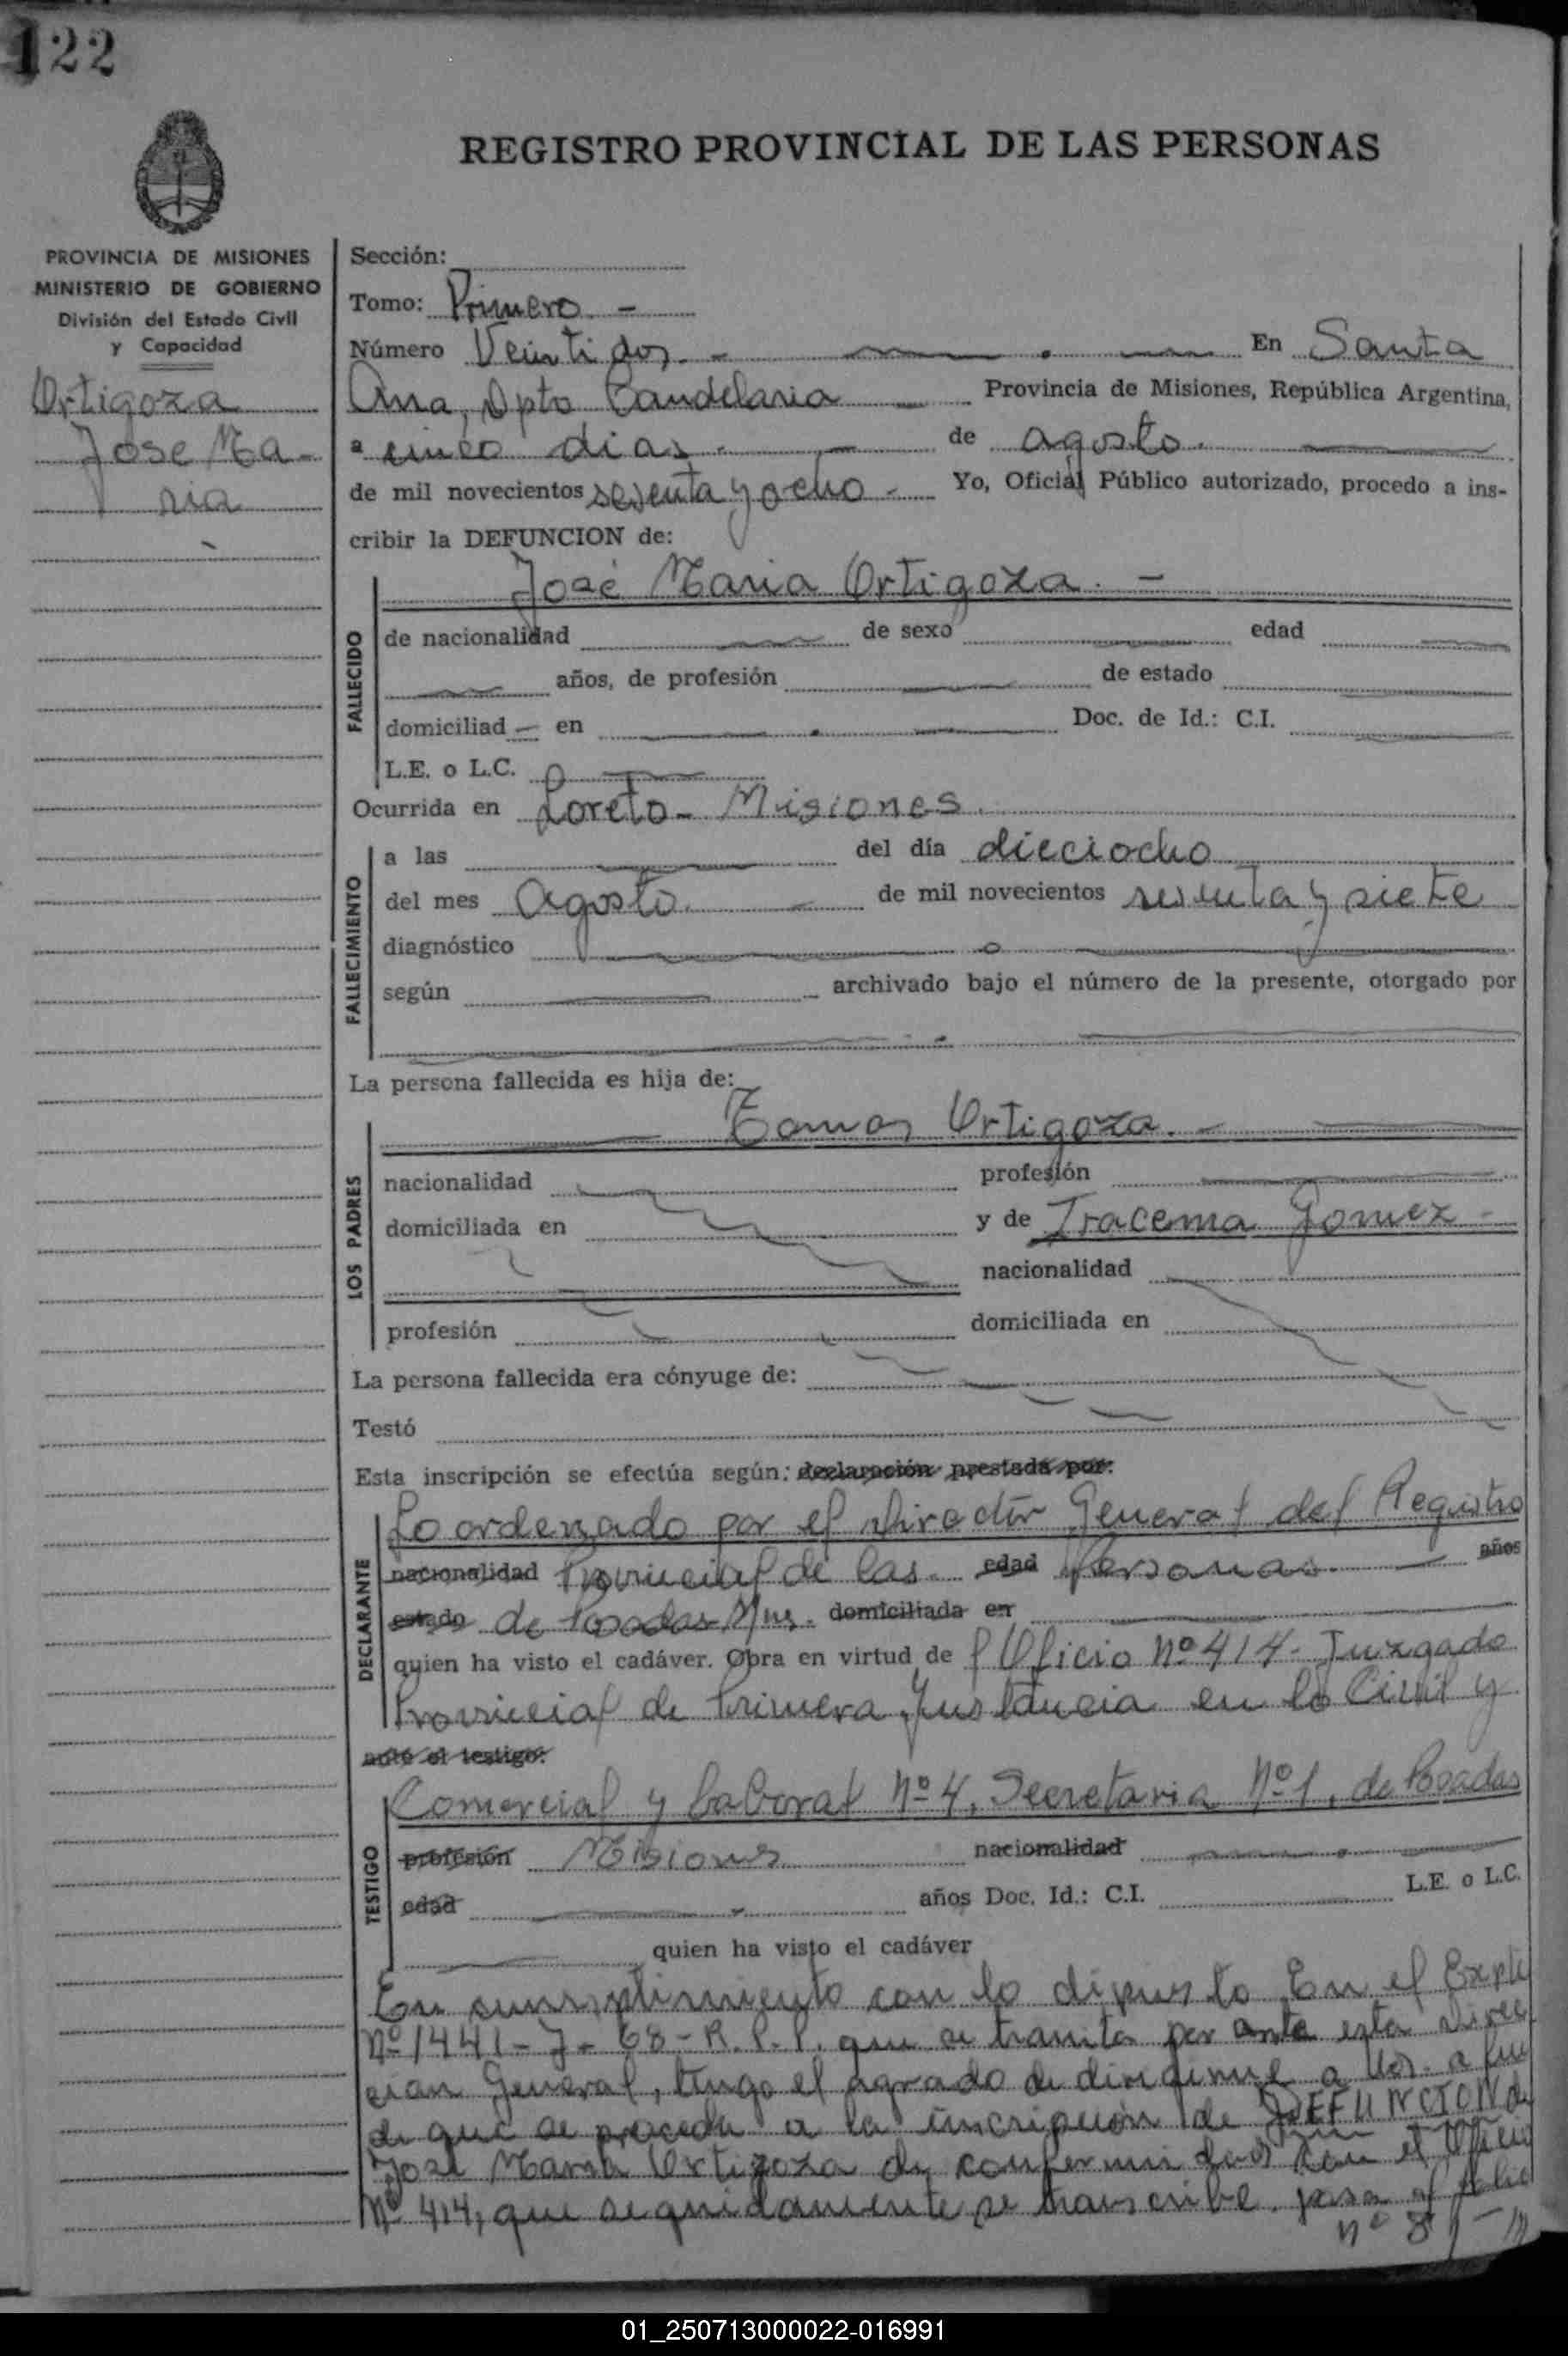 122
REGISTRO PROVINCIAL DE LAS PERSONAS
PROVINCIA DE MISIONES
MINISTERIO DE GOBIERNO
División del Estado Civil
y Capacidad
Ortigoza
Jose Ma-
ria
Sección:
Tomo: Primero. -
Número Veintidos. - En Santa
Ana, Dpto Candelaria Provincia de Misiones, República Argentina,
a cinco dias. de agosto.
de mil novecientos sesenta y ocho - Yo, Oficial Público autorizado, procedo a ins-
cribir la DEFUNCION de:
José Maria Ortigoza. -
FALLECIDO
de nacionalidad de sexo edad
años, de profesión de estado
domiciliad en Doc. de Id.: C.I.
L.E. o L.C.
Ocurrida en Loreto - Misiones.
FALLECIMIENTO
a las del día dieciocho
del mes Agosto. de mil novecientos sesenta y siete
diagnóstico
según archivado bajo el número de la presente, otorgado por
La persona fallecida es hija de:
LOS PADRES
Tomas Ortigoza. -
nacionalidad profesión
domiciliada en y de Iracema Gomez -
nacionalidad
profesión domiciliada en
La persona fallecida era cónyuge de:
Testó
Esta inscripción se efectúa según: declaración prestada por:
DECLARANTE
Lo ordenado por el Director General del Registro
nacionalidad Provincial de las edad Personas. años
estado de Posadas Mns. domiciliada en
quien ha visto el cadáver. Obra en virtud de l Oficio Nº 414 - Juzgado
Provincial de Primera Instancia en lo Civil y
ante el testigo:
TESTIGO
Comercial y Laboral Nº 4, Secretaria Nº 1, de Posadas
profesión Misiones nacionalidad
edad años Doc. Id.: C.I. L.E. o L.C.
quien ha visto el cadáver
En cumplimiento con lo dipuesto En el Expte
Nº 1441 - J - 68 - R.P.P. que se tramita por ante esta Direc
cion General, tengo el agrado de dirigirme a Ud. a fin
de que se proceda a la inscripcion de DEFUNCION de
José Maria Ortigoza de conformidad con el Oficio
Nº 414, que seguidamente se transcribe. pasa al folio
nº 81
01_250713000022-016991